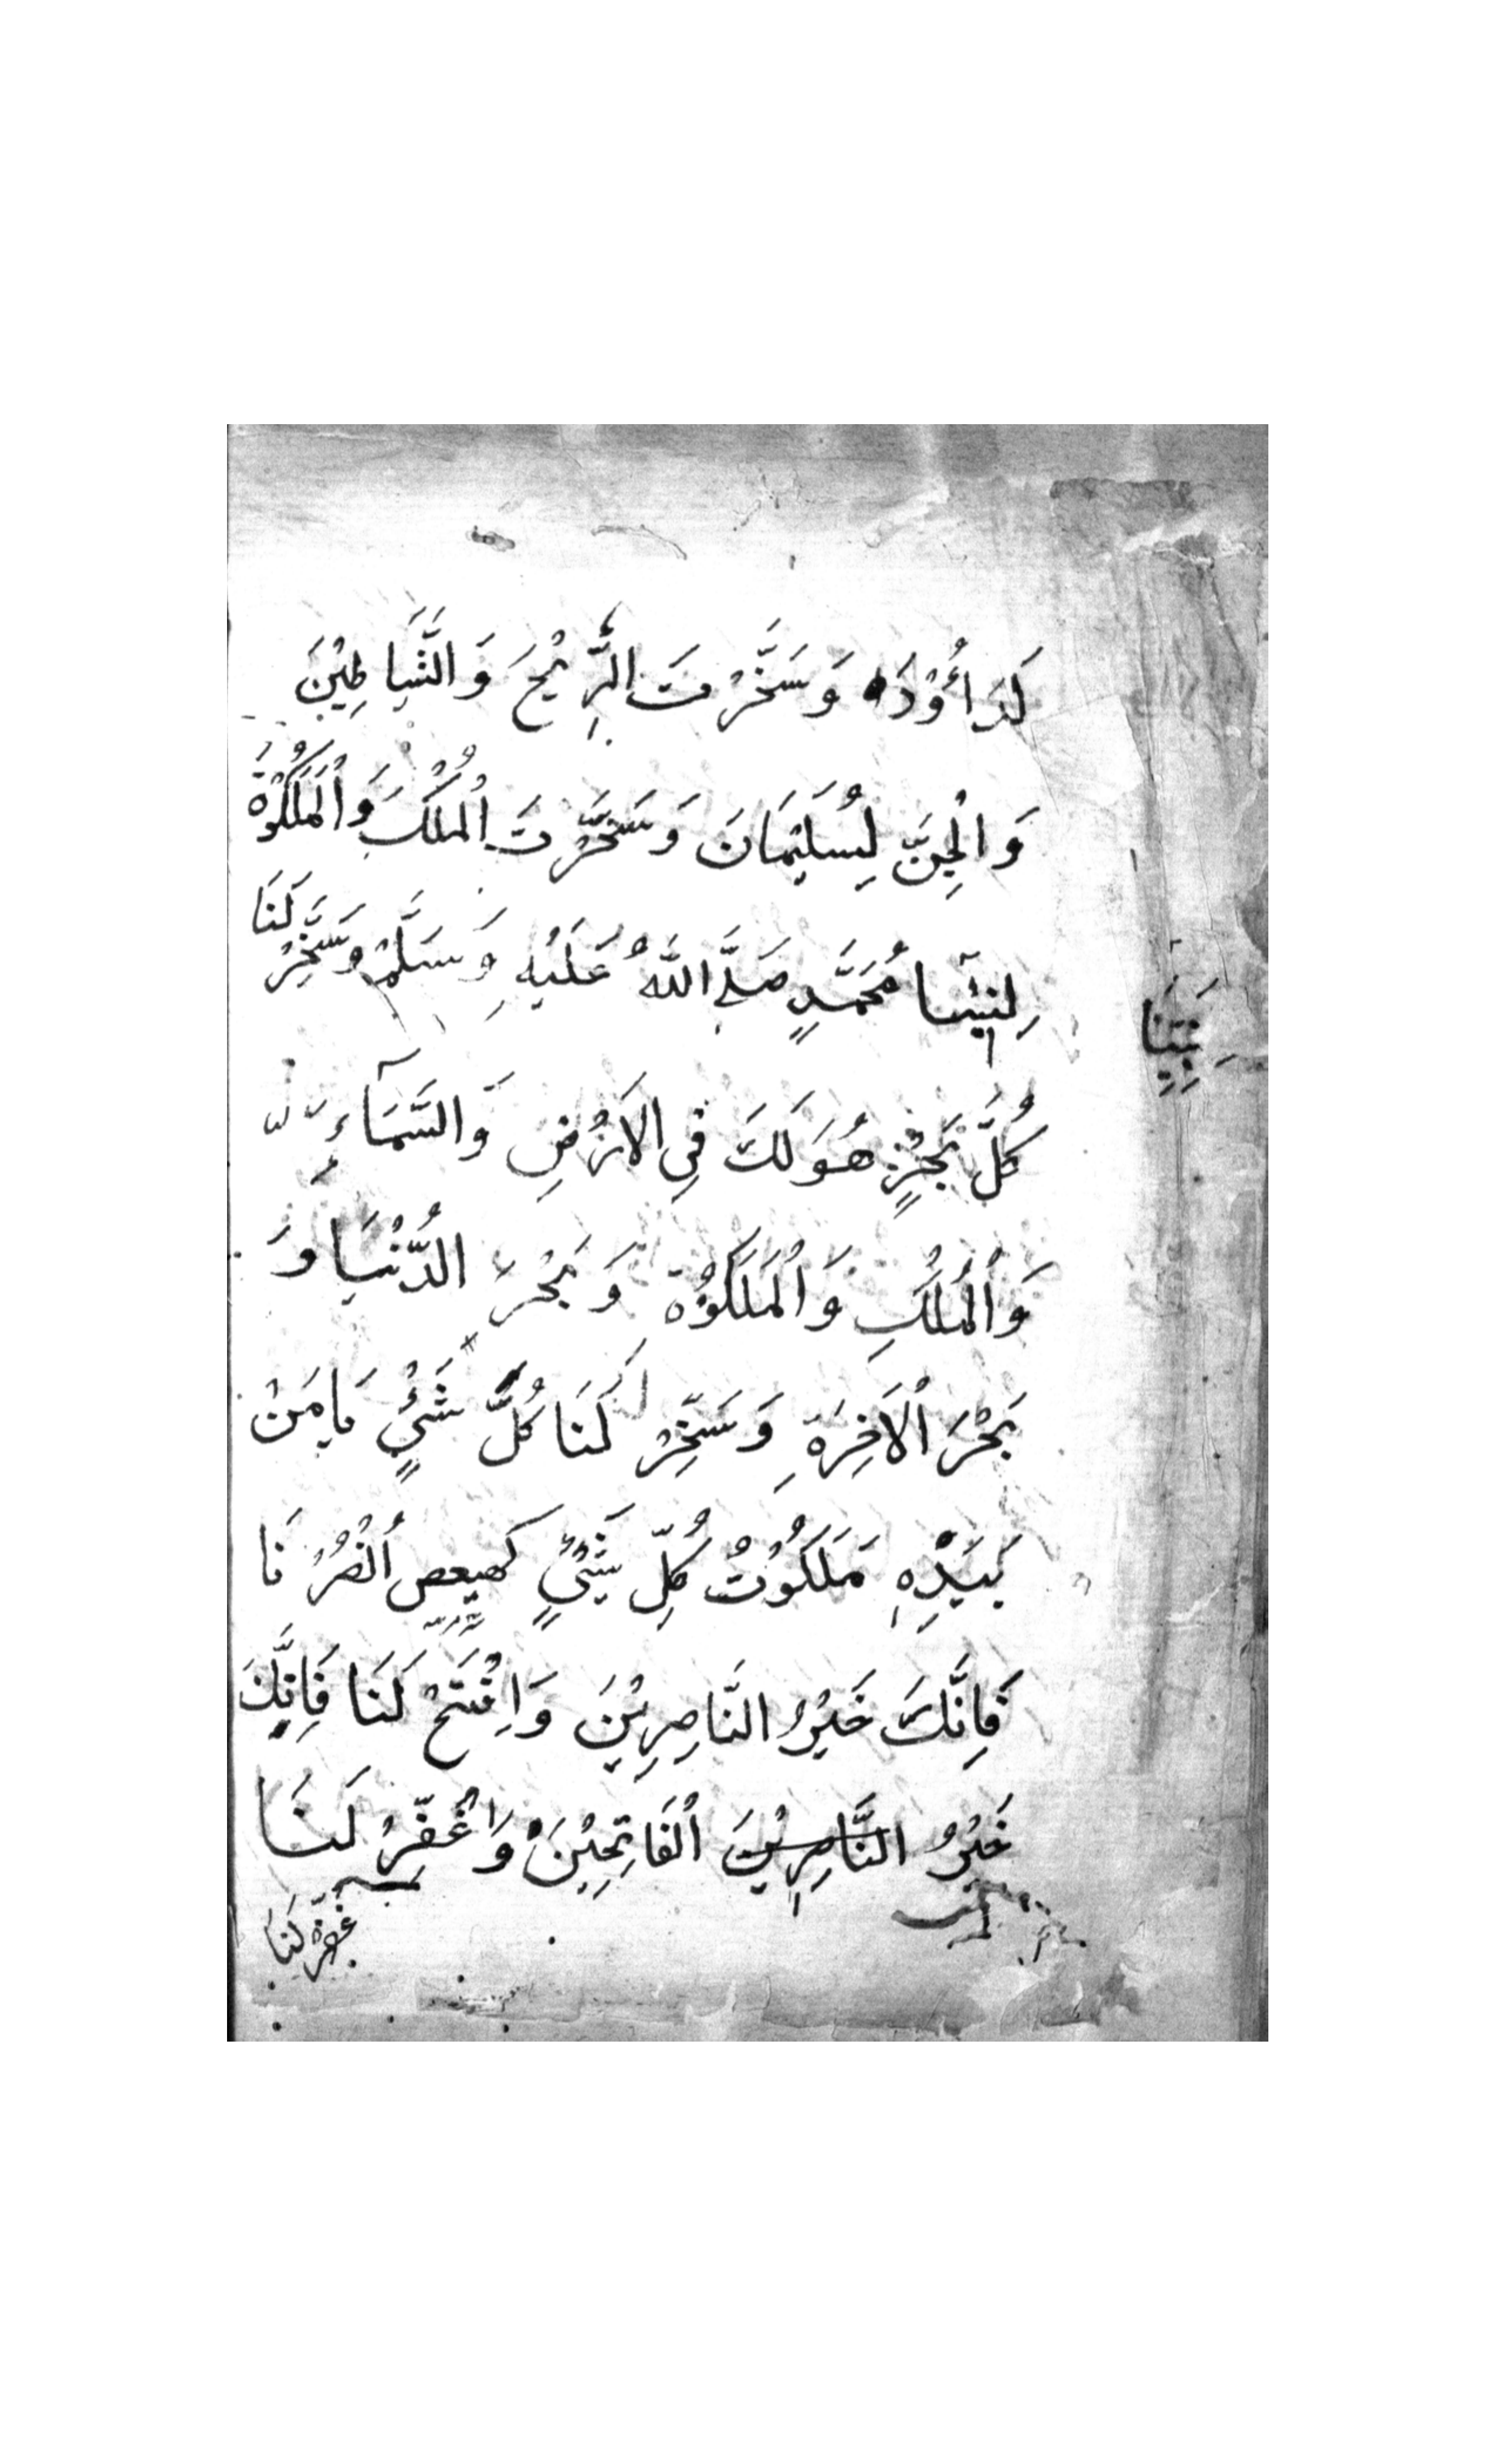 لَدَاؤُدَ وَسَخَّرْتَ الرِّيْحَ وَالشَّيَاطِيْنَ
وَالْجِنَّ لِسُلَيْمَانَ وَسَخَّرْتَ الْمُلْكَ وَالْمَلَكُوْةَ
لِنَبِيِّنَا مُحَمَّدٍ صَلَّى اللّٰهُ عَلَيْهِ وَسَلَّمْ وَسَخِّرْ لَنَا
نَبِيِّنَا
كُلَّ بَحْرٍ هُوَ لَكَ فِي الْاَرْضِ وَالسَّمَآءِ
وَالْمُلْكِ وَالْمَلَكُوْةِ وَبَحْرَ الدُّنْيَا وَ
بَحْرَ الْاَخِرَةِ وَسَخِّرْ لَنَا كُلَّ شَيْءٍ يَامَنْ
بِيَدِهِ مَلَكُوْتُ كُلِّ شَيْءٍ كهيعص اُنْصُرْنَا
فَاِنَّكَ خَيْرُ النَّاصِرِيْنَ وَافْتَحْ لَنَا فَاِنَّكَ
خَيْرُ النَّاصِرِيْنَ الْفَاتِحِيْنَ وَاغْفِرْ لَنَا